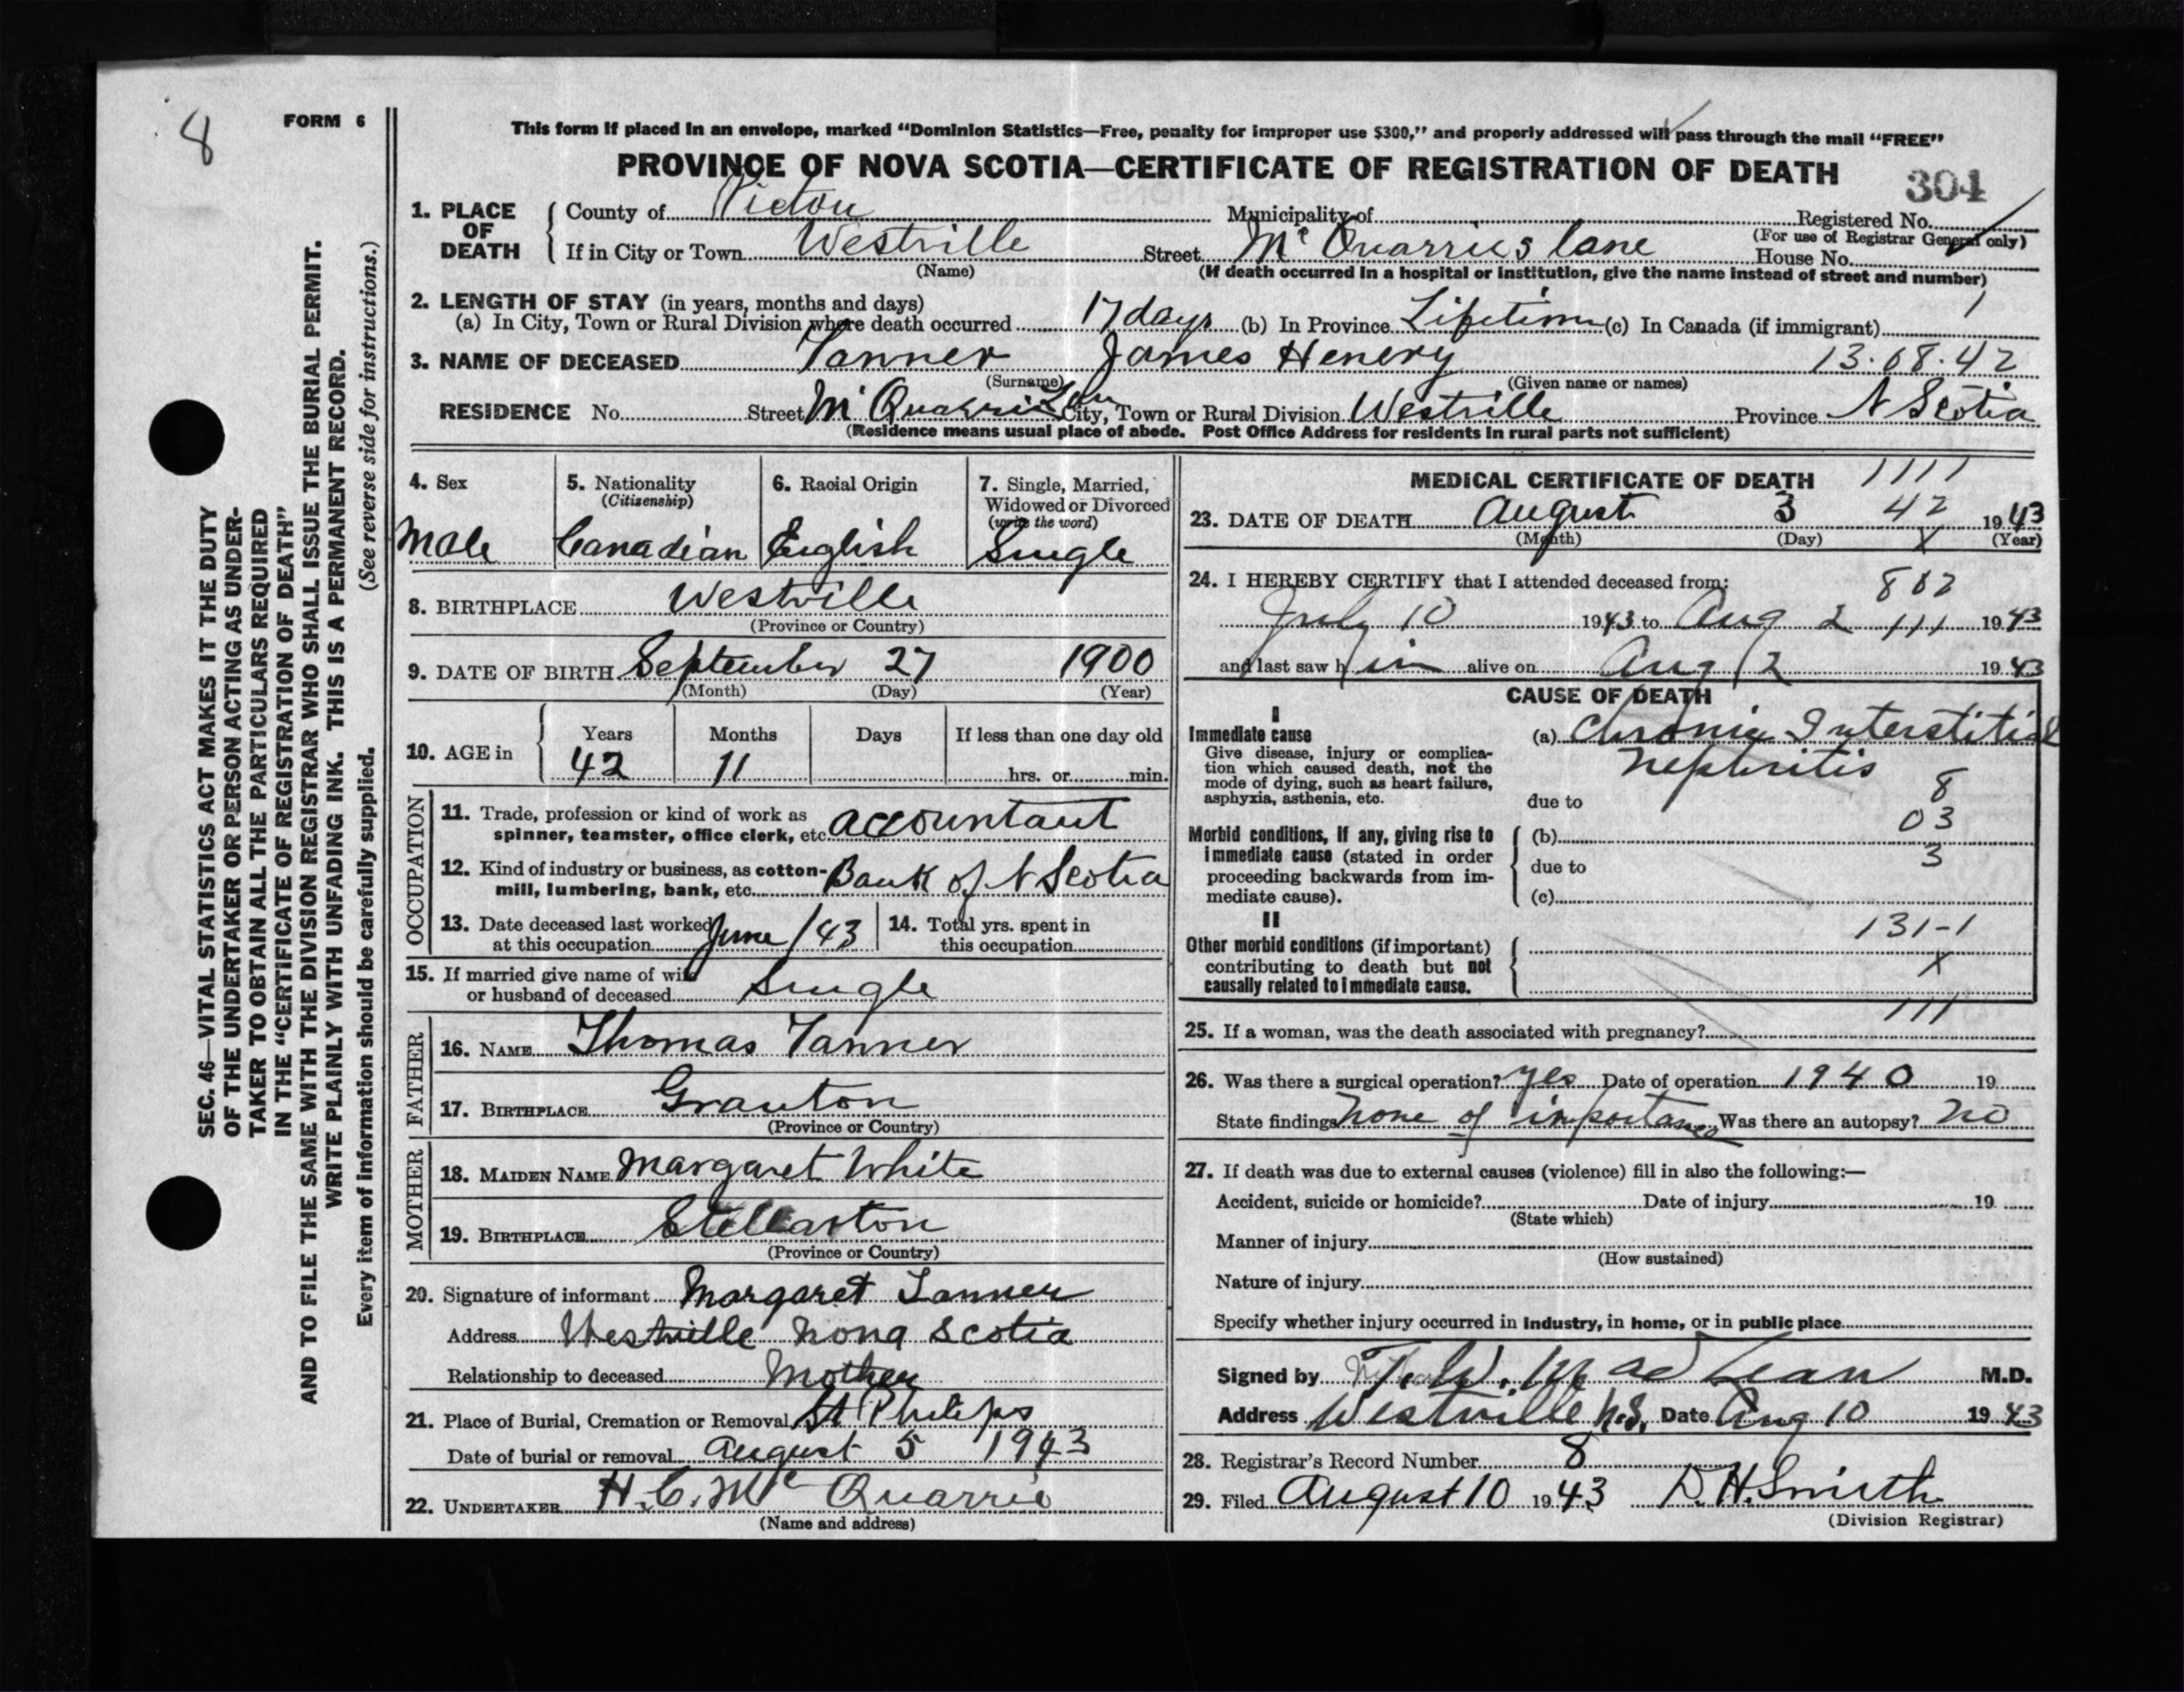 8
FORM 6
SEC. 46—VITAL STATISTICS ACT MAKES IT THE DUTY
OF THE UNDERTAKER OR PERSON ACTING AS UNDER-
TAKER TO OBTAIN ALL THE PARTICULARS REQUIRED
IN THE "CERTIFICATE OF REGISTRATION OF DEATH"
AND TO FILE THE SAME WITH THE DIVISION REGISTRAR WHO SHALL ISSUE THE BURIAL PERMIT.
WRITE PLAINLY WITH UNFADING INK. THIS IS A PERMANENT RECORD.
Every item of information should be carefully supplied. (See reverse side for instructions.)
This form if placed in an envelope, marked "Dominion Statistics—Free, penalty for improper use $300," and properly addressed will pass through the mail "FREE"
PROVINCE OF NOVA SCOTIA—CERTIFICATE OF REGISTRATION OF DEATH
304
1. PLACE OF DEATH County of Pictou Municipality of Registered No.
(For use of Registrar General only)
If in City or Town Westville Street Mc Quarries lane House No.
(Name) (If death occurred in a hospital or institution, give the name instead of street and number)
2. LENGTH OF STAY (in years, months and days)
(a) In City, Town or Rural Division where death occurred 17 days (b) In Province Lifetime (c) In Canada (if immigrant) 1
3. NAME OF DECEASED Tanner James Henery 13.08.42
(Surname) (Given name or names)
RESIDENCE No. Street Mc Quarrie Lane City, Town or Rural Division Westville Province N Scotia
(Residence means usual place of abode. Post Office Address for residents in rural parts not sufficient)
4. Sex 5. Nationality 6. Racial Origin 7. Single, Married,
(Citizenship) Widowed or Divorced
(write the word)
Male Canadian English Single
8. BIRTHPLACE Westville
(Province or Country)
9. DATE OF BIRTH September 27 1900
(Month) (Day) (Year)
10. AGE in Years Months Days If less than one day old
42 11 hrs. or min.
OCCUPATION
11. Trade, profession or kind of work as
spinner, teamster, office clerk, etc. accountant
12. Kind of industry or business, as cotton-
mill, lumbering, bank, etc. Bank of N Scotia
13. Date deceased last worked
at this occupation June /43
14. Total yrs. spent in
this occupation
15. If married give name of wife
or husband of deceased Single
FATHER
16. NAME Thomas Tanner
17. BIRTHPLACE Granton
(Province or Country)
MOTHER
18. MAIDEN NAME Margaret White
19. BIRTHPLACE Stellarton
(Province or Country)
20. Signature of informant Margaret Tanner
Address Westville Nova Scotia
Relationship to deceased Mother
21. Place of Burial, Cremation or Removal St Philips
Date of burial or removal August 5 1943
22. UNDERTAKER H.C. Mc Quarrie
(Name and address)
MEDICAL CERTIFICATE OF DEATH 1111
23. DATE OF DEATH August 3 42 1943
(Month) (Day) X (Year)
24. I HEREBY CERTIFY that I attended deceased from:
July 10 1943 to Aug 2 111 1943
and last saw him alive on Aug 2 1943
CAUSE OF DEATH
I
Immediate cause
Give disease, injury or complica-
tion which caused death, not the
mode of dying, such as heart failure,
asphyxia, asthenia, etc.
(a) Chronic Interstitial
Nephritis
8
due to
03
Morbid conditions, if any, giving rise to
immediate cause (stated in order
proceeding backwards from im-
mediate cause).
(b)
3
due to
(c)
II
131-1
Other morbid conditions (if important)
contributing to death but not
causally related to immediate cause.
X
111
25. If a woman, was the death associated with pregnancy?
26. Was there a surgical operation? Yes Date of operation 1940 19
State findings None of importance Was there an autopsy? no
27. If death was due to external causes (violence) fill in also the following:—
Accident, suicide or homicide? Date of injury 19
(State which)
Manner of injury
(How sustained)
Nature of injury
Specify whether injury occurred in industry, in home, or in public place
Signed by T. W. MacLean M.D.
Address Westville N.S. Date Aug 10 1943
28. Registrar's Record Number 8
29. Filed August 10 1943 D. H. Smith
(Division Registrar)